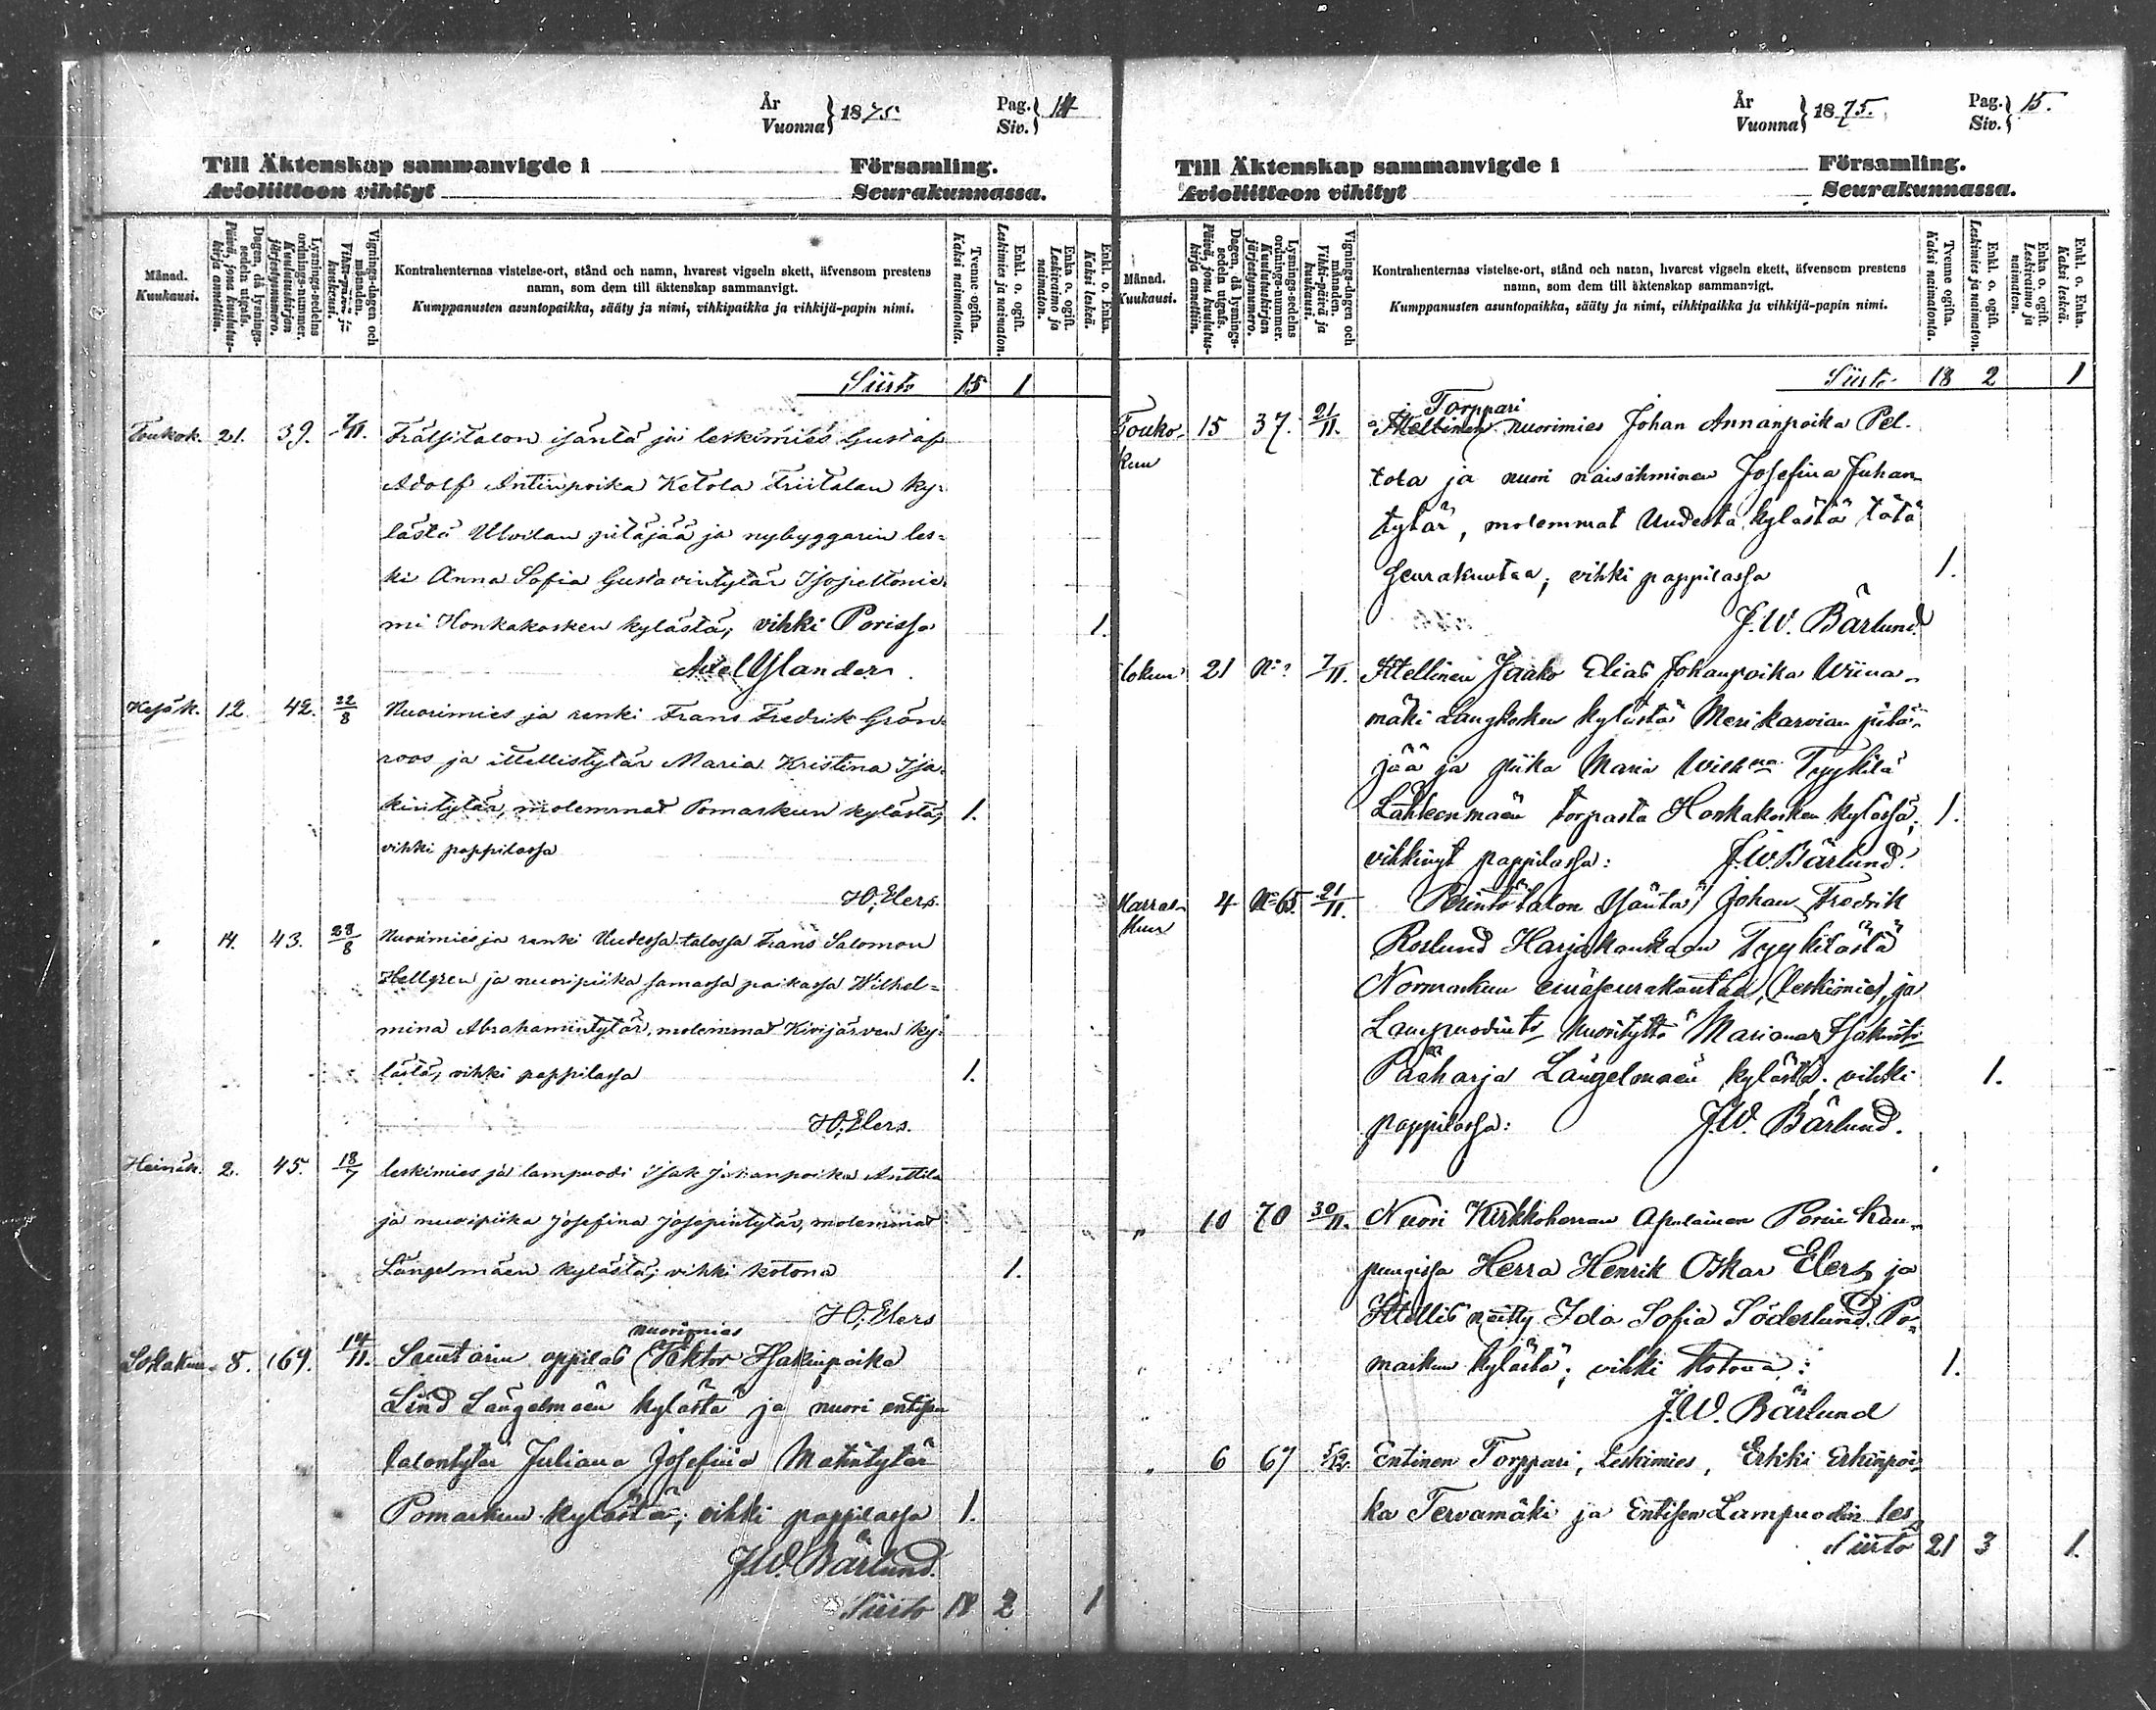 År
Vuonna } 1875. Pag. Siv. } 14
Till Äktenskap sammanvigde i Församling.
Avioliittoon vihityt Seurakunnassa.
Månad. Kuukausi.
Dagen, då lysnings-sedeln utgafs. Päivä, jona kuulutus-kirja annettiin.
Lysnings-sedelns ordnings-nummer. Kuulutuskirjan järjestysnumero.
Vignings-dagen och månaden. Vihki-päivä ja kuukausi.
Kontrahenternas vistelse-ort, stånd och namn, hvarest vigseln skett, äfvensom prestens
namn, som dem till äktenskap sammanvigt.
Kumppanusten asuntopaikka, sääty ja nimi, vihkipaikka ja vihkijä-papin nimi.
Tvenne ogifta. Kaksi naimatonta.
Enkl. o. ogift. Leskimies ja naimaton.
Enka o. ogift. Leskivaimo ja naimaton.
Enkl. o. Enka. Kaksi leskeä.
Siirto 15 1
Toukok. 21. 39. 7/11. Frälsitalon isäntä ja leskimies Gustaf
Adolf Antinpoika Ketola Friitalan ky-
lästä Ulvilan pitäjää ja nybyggarin les-
ki Anna Sofia Gustavintytär Isopeltonie-
mi Honkakosken kylästä; vihki Porissa 1.
Axel Ylander.
Kesäk. 12. 42. 22/8 Nuorimies ja renki Frans Fredrik Grön-
roos ja itellistytär Maria Kristina Isa-
kintytär, molemmat Pomarkun kylästä; 1.
vihki pappilassa
H.O. Elers.
" 14. 43. 28/8 Nuorimies ja renki Uudessa-talossa Frans Salomon
Hellgren ja nuoripiika samassa paikassa Wilhel-
mina Abrahamintytär, molemmat Kivijärven ky-
lästä; vihki pappilassa 1.
H.O. Elers.
Heinäk. 2. 45. 18/7 leskimies ja lampuodi Isak Juhanpoika Anttila
ja nuoripiika Josefina Josepintytär, molemmat
Längelmäen kylästä; vihki kotona 1.
H.O. Elers
nuorimies
Lokakuu 8. 169. 14/11. Suutarin oppilas Viktor Isakinpoika
Lind Längelmäen kylästä ja nuori entisen
talontytär Juliana Josefina Matintytär
Pomarkun kylästä; vihki pappilassa 1.
J.W. Bärlund.
Siirto 18 2 1
År
Vuonna } 1875. Pag. Siv. } 15.
Till Äktenskap sammanvigde i Församling.
Avioliittoon vihityt Seurakunnassa.
Månad. Kuukausi.
Dagen, då lysnings-sedeln utgafs. Päivä, jona kuulutus-kirja annettiin.
Lysnings-sedelns ordnings-nummer. Kuulutuskirjan järjestysnumero.
Vignings-dagen och månaden. Vihki-päivä ja kuukausi.
Kontrahenternas vistelse-ort, stånd och namn, hvarest vigseln skett, äfvensom prestens
namn, som dem till äktenskap sammanvigt.
Kumppanusten asuntopaikka, sääty ja nimi, vihkipaikka ja vihkijä-papin nimi.
Tvenne ogifta. Kaksi naimatonta.
Enkl. o. ogift. Leskimies ja naimaton.
Enka o. ogift. Leskivaimo ja naimaton.
Enkl. o. Enka. Kaksi leskeä.
Siirto 18 2 1
Torppari
Touko- 15 37. 21/11. Itellinen nuorimies Johan Annanpoika Pel-
kuu
tola ja nuori naisihminen Josefina Juhan-
tytär, molemmat Uudesta kylästä tätä
Seurakuntaa; vihki pappilassa 1.
J.W. Bärlund.
lokuu 21 No 7/11. Itellinen Jaako Elias Johanpoika Wiina-
mäki Langkosken kylästä Merikarvian pitä-
jää ja piika Maria Wilhna Tyykilä
Lähteenmäen torpasta Honkakosken kylässä; 1.
vihkinyt pappilassa: J.W. Bärlund.
Marras- 4 No 65. 21/11. Perintötalon Isäntä Johan Fredrik
kuu
Roslund Harjakankaan Tyykilästä
Normarkun emäseurakuntaa, (leskimies), ja
Lampuodin nuorityttö Mariana Isakint:
Pääharja Längelmäen kylästä. vihki 1.
pappilassa: J.W. Bärlund.
" 10 70 30/11. Nuori Kirkkoherran Apulainen Porin kau-
pungissa Herra Henrik Oskar Elers ja
Itellis neitty Ida Sofia Söderlund Po-
markun kylästä; vihki kotona: 1.
J.W. Bärlund
" 6 67 5/12. Entinen Torppari, Leskimies, Erkki Erkinpoi-
ka Tervamäki ja Entisen Lampuodin les-
Siirto 21 3 1.